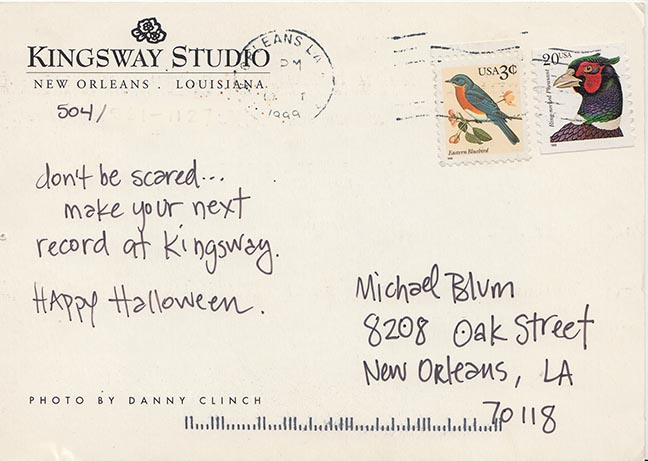 KINGSWAY STUDIO
NEW ORLEANS . LOUISIANA
504/
ORLEANS LA
PM
1999
USA 3¢
Eastern Bluebird
20 USA
Ring-necked Pheasant
don't be scared...
make your next
record at Kingsway.
HAppy Halloween.
Michael Blum
8208 Oak Street
New Orleans, LA
70118
PHOTO BY DANNY CLINCH